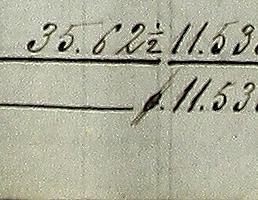 35.62½ 11.53
11.53